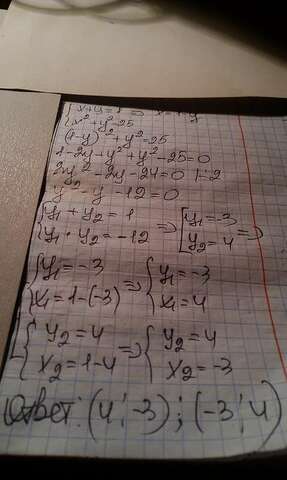 x+y=1 => x=1-y
x²+y²=25
(1-y)²+y²=25
1-2y+y²+y²-25=0
2y²-2y-24=0 |:2
y²-y-12=0
{y₁+y₂=1 => [y₁=-3
{y₁·y₂=-12 [y₂=4 =>
{y₁=-3 => {y₁=-3
{x₁=1-(-3) {x₁=4
{y₂=4 => {y₂=4
{x₂=1-4 {x₂=-3
Ответ: (4;-3);(-3;4)